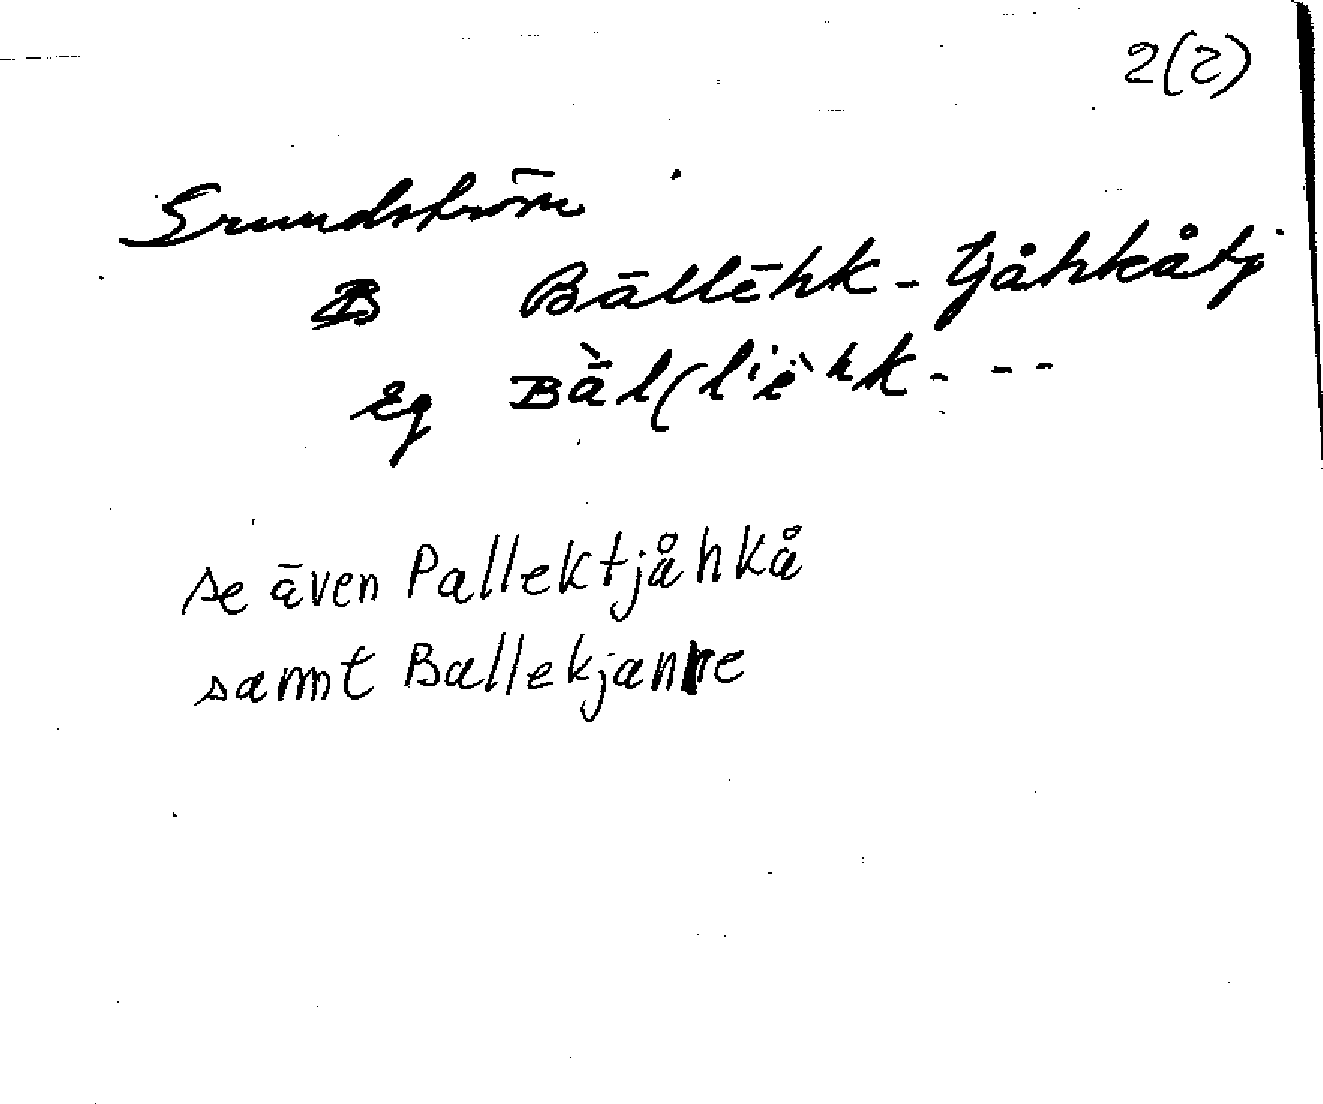 2(2)
Grundström
B Bāllēhk-tjåhkåtj
Eg Bā̀l(l'ḕhk- - -
se även Pallektjåhkå
samt Ballekjanre